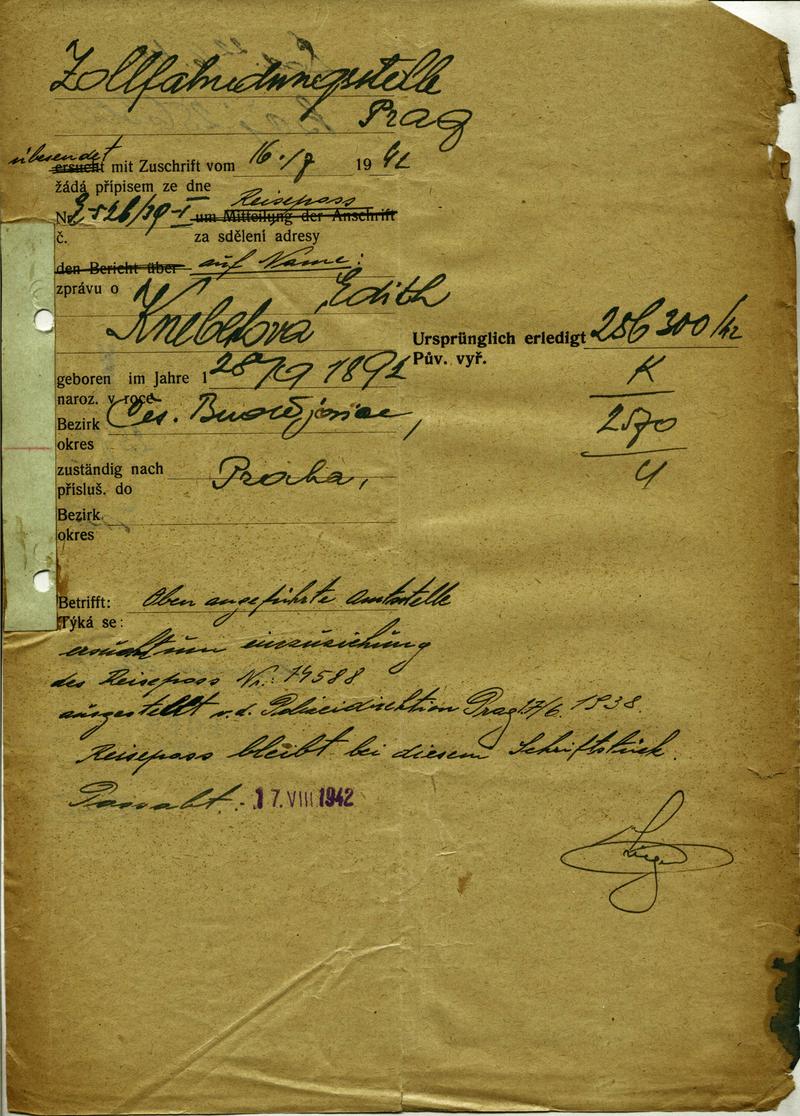 Zollfahndungsstelle
Prag
übersendet
ersucht mit Zuschrift vom 16./7 19 42
žádá přípisem ze dne
Reisepass
Nr. um Mitteilung der Anschrift
č. za sdělení adresy
den Bericht über auf Name:
zprávu o
Edith
Knebelová
Ursprünglich erledigt 286300/42
Pův. vyř.
K
2570
4
geboren im Jahre 1 28/9 1892
naroz. v roce
Bezirk Čes. Budějovice,
okres
zuständig nach Praha,
přísluš. do
Bezirk
okres
Betrifft: Oben angeführte Amtsstelle
Týká se:
ersucht um einzusichung
des Reisepass Nr.: 14588
ausgestellt v. d. Polizeidirektion Prag 17/6. 1938.
Reisepass bleibt bei diesem Schriftstück.
Passabt. - 17. VIII 1942